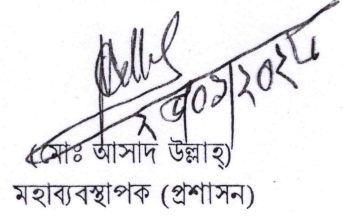 (মোঃ আসাদ উল্লাহ্)
মহাব্যবস্থাপক (প্রশাসন)